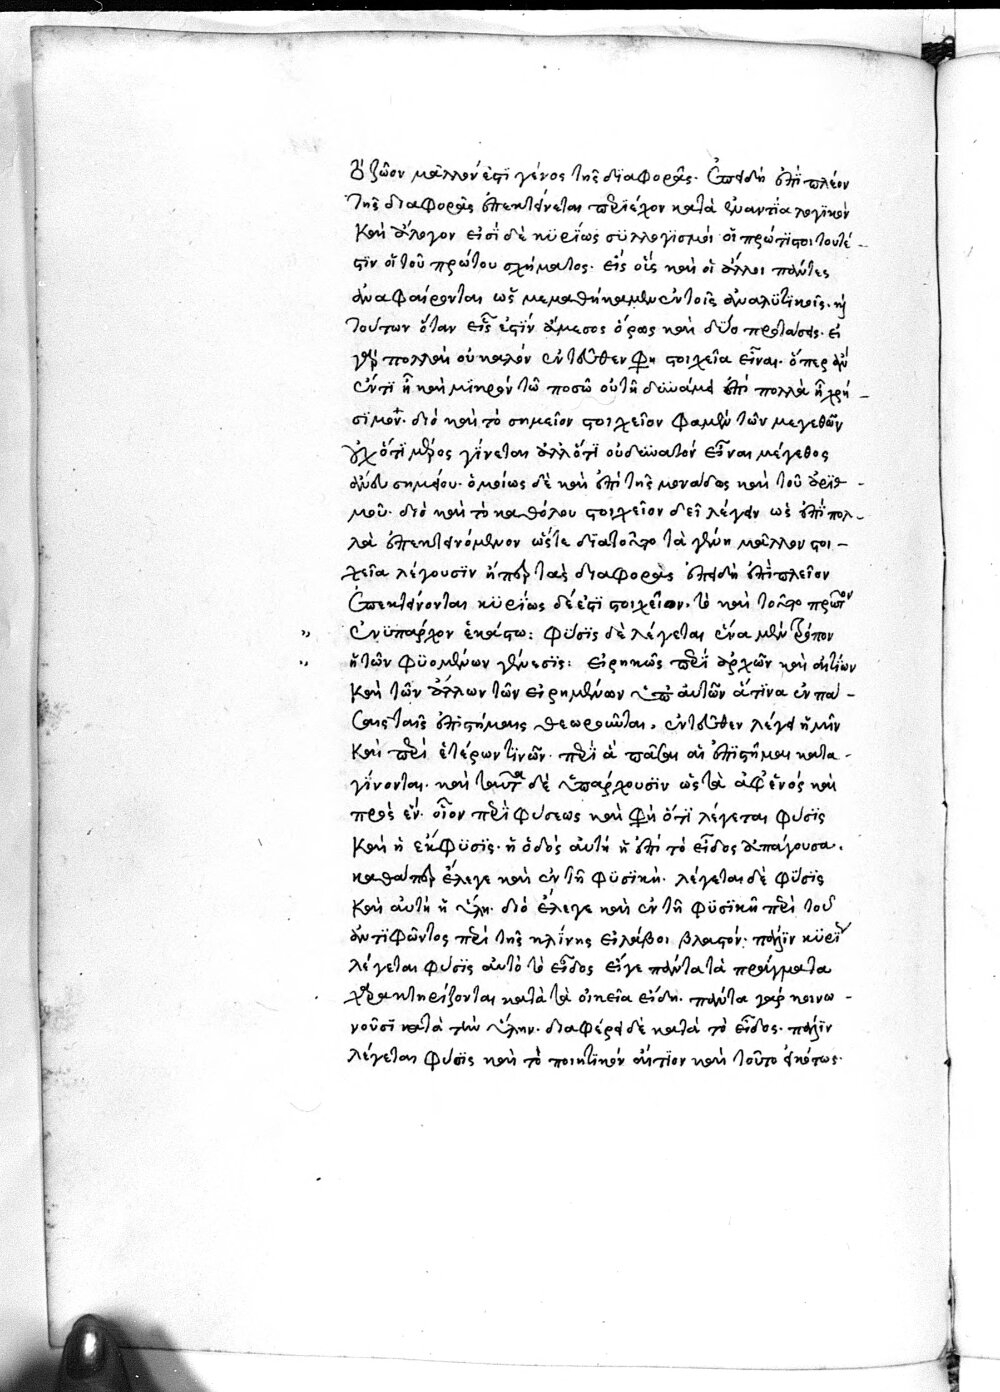 τὸ ζῶον μᾶλλόν ἐστι γένος τῆς διαφορᾶς. ἐπειδὴ ἐπὶ πλέον
τῆς διαφορᾶς ἐπεκτείνεται περιέχον κατὰ ἐναντία λογικὸν
καὶ ἄλογον εἰσὶ δὲ κυρίως συλλογισμοὶ οἱ πρῶτοι τουτέ-
στιν οἱ τοῦ πρώτου σχήματος. εἰς οὓς καὶ οἱ ἄλλοι πάντες
ἀναφαίρονται ὡς μεμαθήκαμεν ἐν τοῖς ἀναλυτικοῖς. καὶ
τούτων ὅταν εἷς ἐστὶν ἄμεσος ὅρος καὶ δύο προτάσεις. εἰ
γὰρ πολλαὶ οὐ καλόν ἐντεῦθεν φησὶ στοιχεῖα εἶναι. ὅπερ ἂν
ἕν τι ἦ καὶ μικρὸν τῶ ποσῶ οὐ τῆ δυνάμει ἐπὶ πολλὰ ἦ χρή-
σιμον. διὸ καὶ τὸ σημεῖον στοιχεῖον φαμὲν τῶν μεγεθῶν
οὐχ ὅτι μέρος γίνεται ἀλλ' ὅτι οὐ δυνατόν εἶναι μέγεθος
ἄνευ σημείου. ὁμοίως δὲ καὶ ἐπὶ τῆς μονάδος καὶ τοῦ ἀριθ-
μοῦ. διὸ καὶ τὸ καθόλου στοιχεῖον δεῖ λέγειν ὡς ἐπὶ πολ-
λὰ ἐπεκτεινόμενον ὥστε διατοῦτο τὰ γένη μᾶλλον στοι-
χεῖα λέγουσιν ἤπερ τὰς διαφορὰς ἐπειδὴ ἐπὶ πλεῖον
ἐπεκτείνονται κυρίως δέ ἐστι στοιχεῖον. τὸ καὶ τοῦτο πρῶτον
ἐνϋπάρχον ἑκάστω: φύσις δὲ λέγεται ἕνα μὲν τρόπον
ἡ τῶν φυομένων γένεσις: εἰρηκὼς περὶ ἀρχῶν καὶ αἰτίων
καὶ τῶν ἄλλων τῶν εἰρημένων ὑπ' αὐτῶν ἅτινα ἐν πά-
σαις ταῖς ἐπιστήμαις θεωροῦνται. ἐντεῦθεν λέγει ἡμῖν
καὶ περὶ ἑτέρων τινῶν. περὶ ἃ πᾶσαι αἱ ἐπιστῆμαι κατα-
γίνονται. καὶ ταῦτα δὲ ὑπάρχουσιν ὡς τὰ ἀφ' ἑνός καὶ
πρὸς ἕν. οἷον περὶ φύσεως καὶ φησὶ ὅτι λέγεται φύσις
καὶ ἡ ἔκφυσις. ἡ ὁδὸς αὐτὴ ἡ ἐπὶ τὸ εἶδος ἀπάγουσα.
καθάπερ ἔλεγε καὶ ἐν τῆ φυσικῆ. λέγεται δὲ φύσις
καὶ αὐτὴ ἡ ὕλη. διὸ ἔλεγε καὶ ἐν τῆ φυσικῆ περὶ τοῦ
ἀντιφῶντος περὶ τῆς κλίνης εἰ λάβοι βλαστόν. πάλιν κυρίως
λέγεται φύσις αὐτὸ τὸ εἶδος εἴγε πάντα τὰ πράγματα
χαρακτηρίζονται κατὰ τὰ οἰκεῖα εἴδη. πάντα γὰρ κοινω-
νοῦσι κατὰ τὴν ὕλην. διαφέρει δὲ κατὰ τὸ εἶδος. πάλιν
λέγεται φύσις καὶ τὸ ποιητικὸν αἴτιον καὶ τοῦτο εἰκότως.